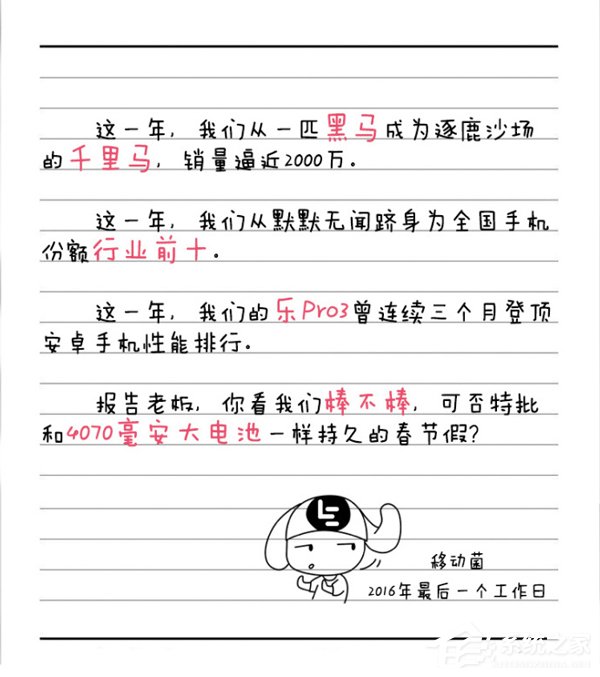 这一年，我们从一匹黑马成为逐鹿沙场
的千里马，销量逼近2000万。
这一年，我们从默默无闻跻身为全国手机
份额行业前十。
这一年，我们的乐Pro3曾连续三个月登顶
安卓手机性能排行。
报告老板，你看我们棒不棒，可否特批
和4070毫安大电池一样持久的春节假？
移动菌
2016年最后一个工作日
系统之家